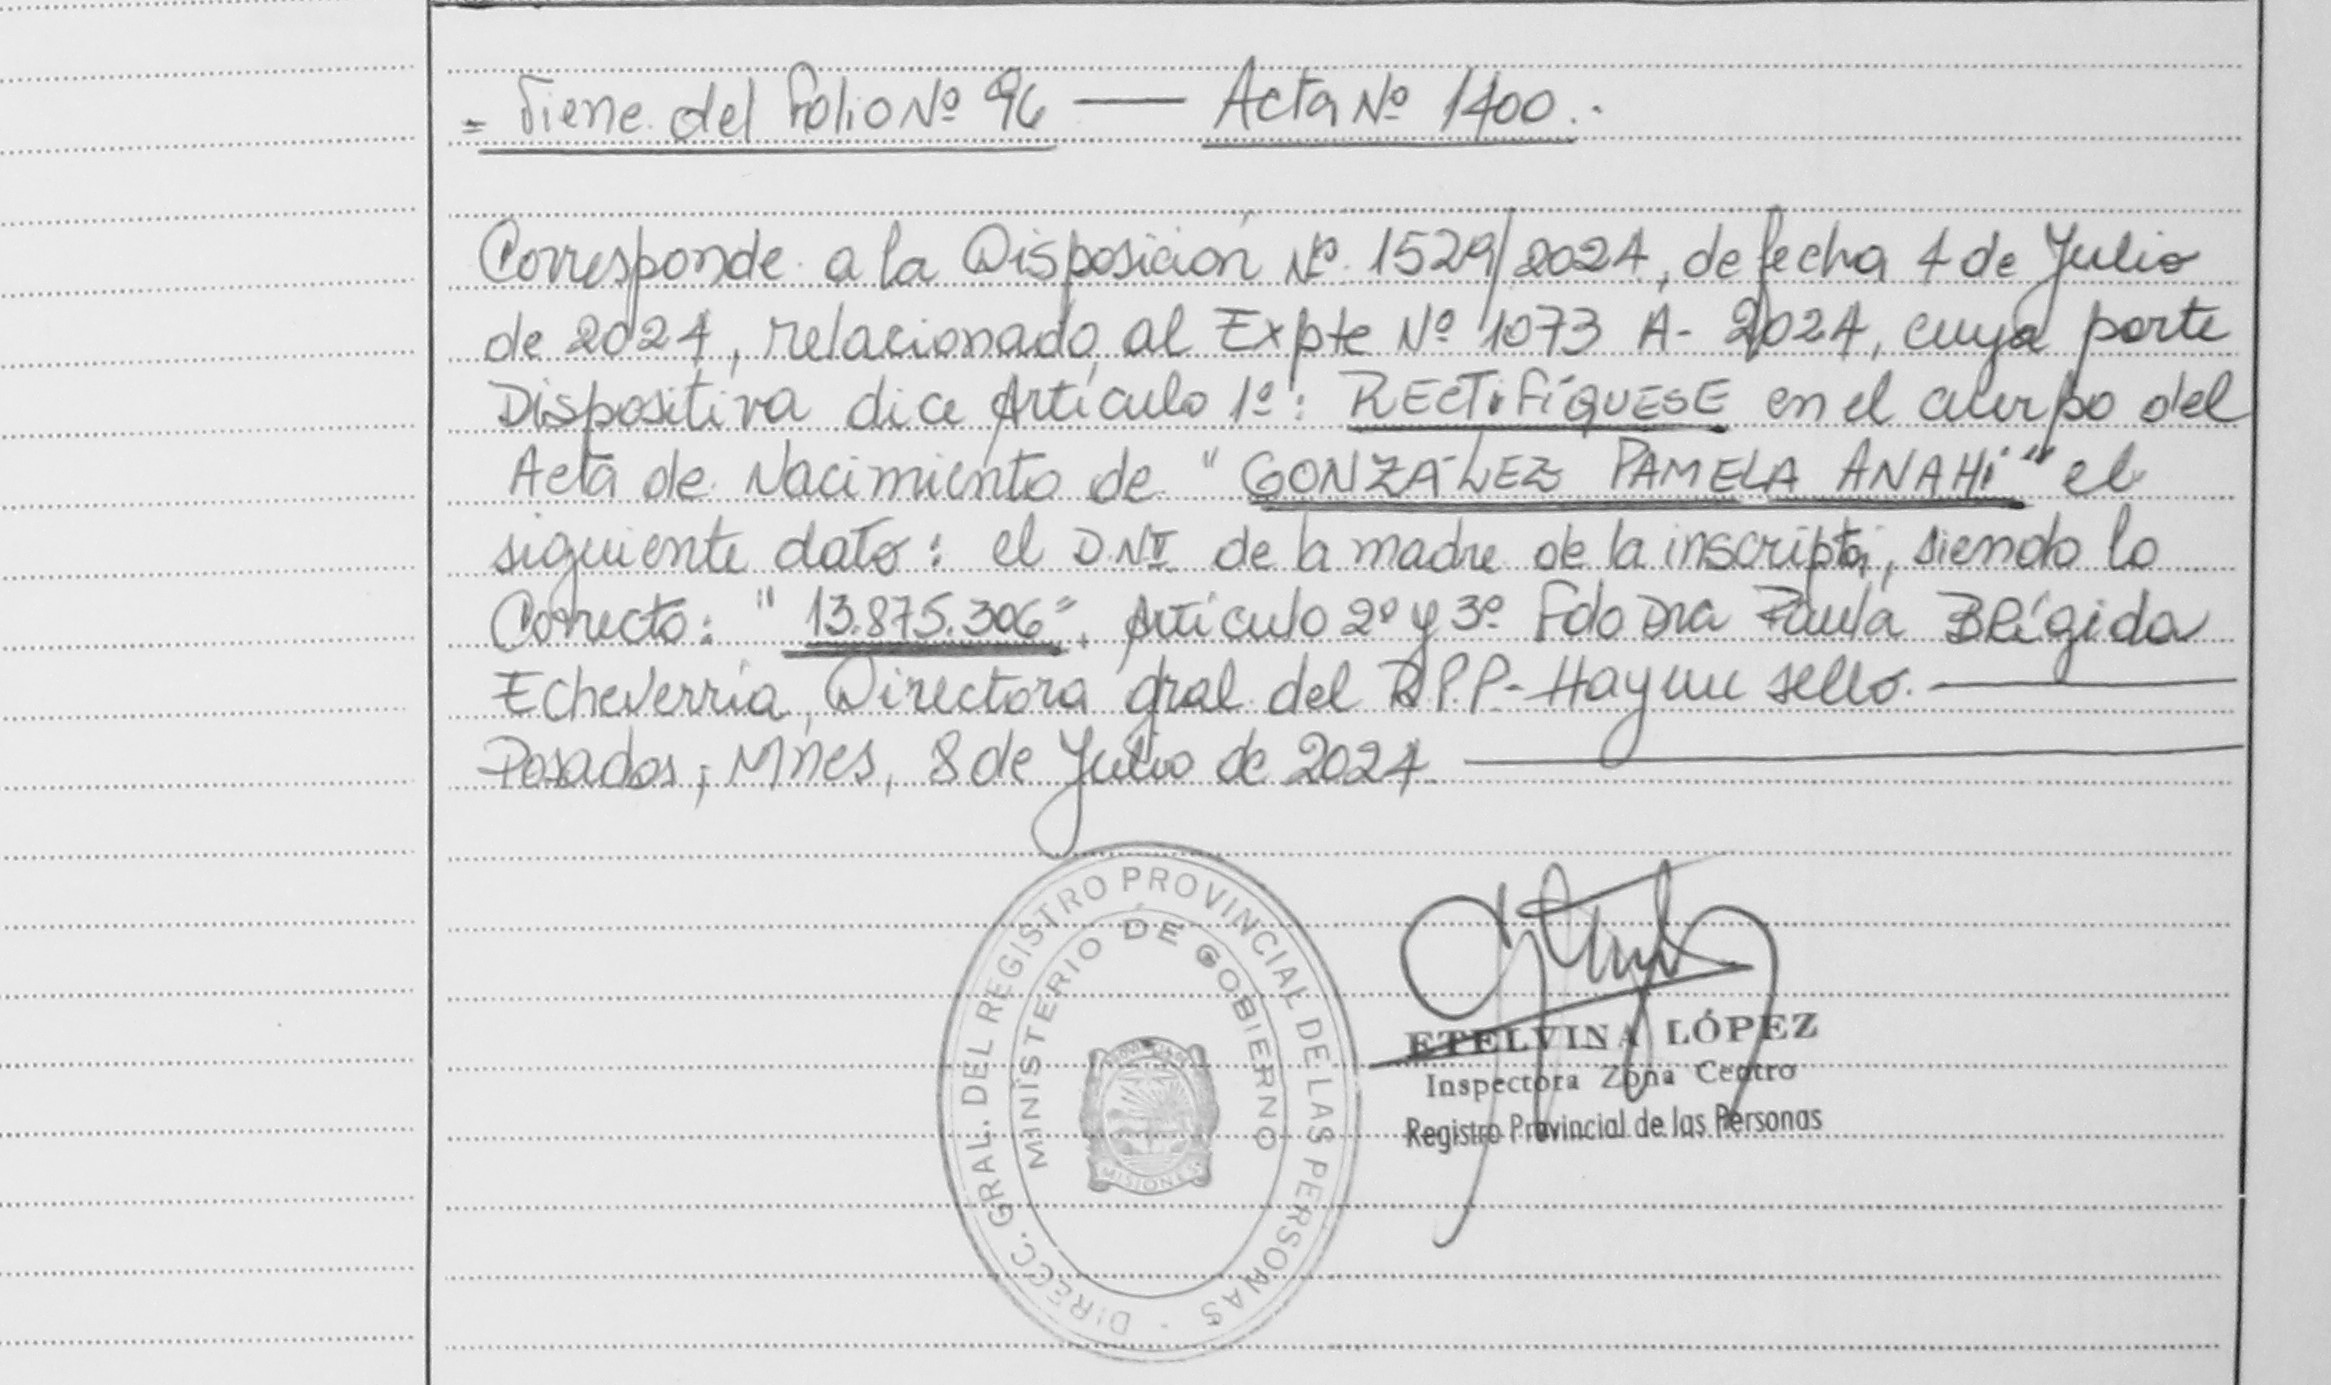 = Viene del Folio Nº 96 — Acta Nº 1400.-
Corresponde a la Disposición Nº 1529/2024, de fecha 4 de Julio
de 2024, relacionado al Expte Nº 1073 A- 2024, cuya parte
Dispositiva dice Artículo 1º: RECTIFÍQUESE en el cuerpo del
Acta de Nacimiento de "GONZÁLEZ PAMELA ANAHÍ" el
siguiente dato: el D.NI de la madre de la inscripta, siendo lo
Correcto: "13.875.306". Artículo 2º y 3º Fdo Dra Paula Brígida
Echeverría, Directora gral del R.P.P.- Hay un sello.
Posadas, Mnes, 8 de Julio de 2024
DIRECC. GRAL. DEL REGISTRO PROVINCIAL DE LAS PERSONAS
MINISTERIO DE GOBIERNO
MISIONES
ETELVINA LÓPEZ
Inspectora Zona Centro
Registro Provincial de las Personas